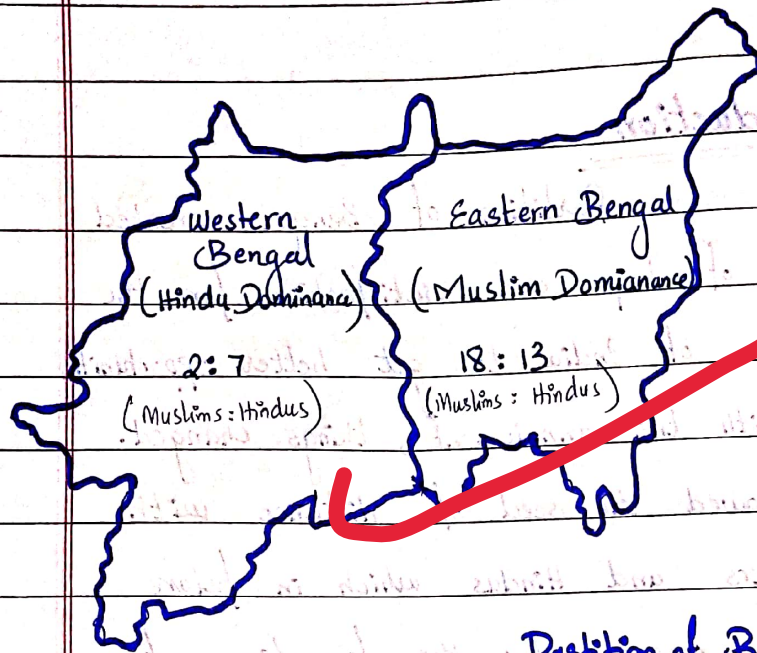 Western
Bengal
(Hindu Dominance)
2:7
(Muslims: Hindus)
Eastern Bengal
(Muslim Domianance)
18:13
(Muslims: Hindus)
Partition of B